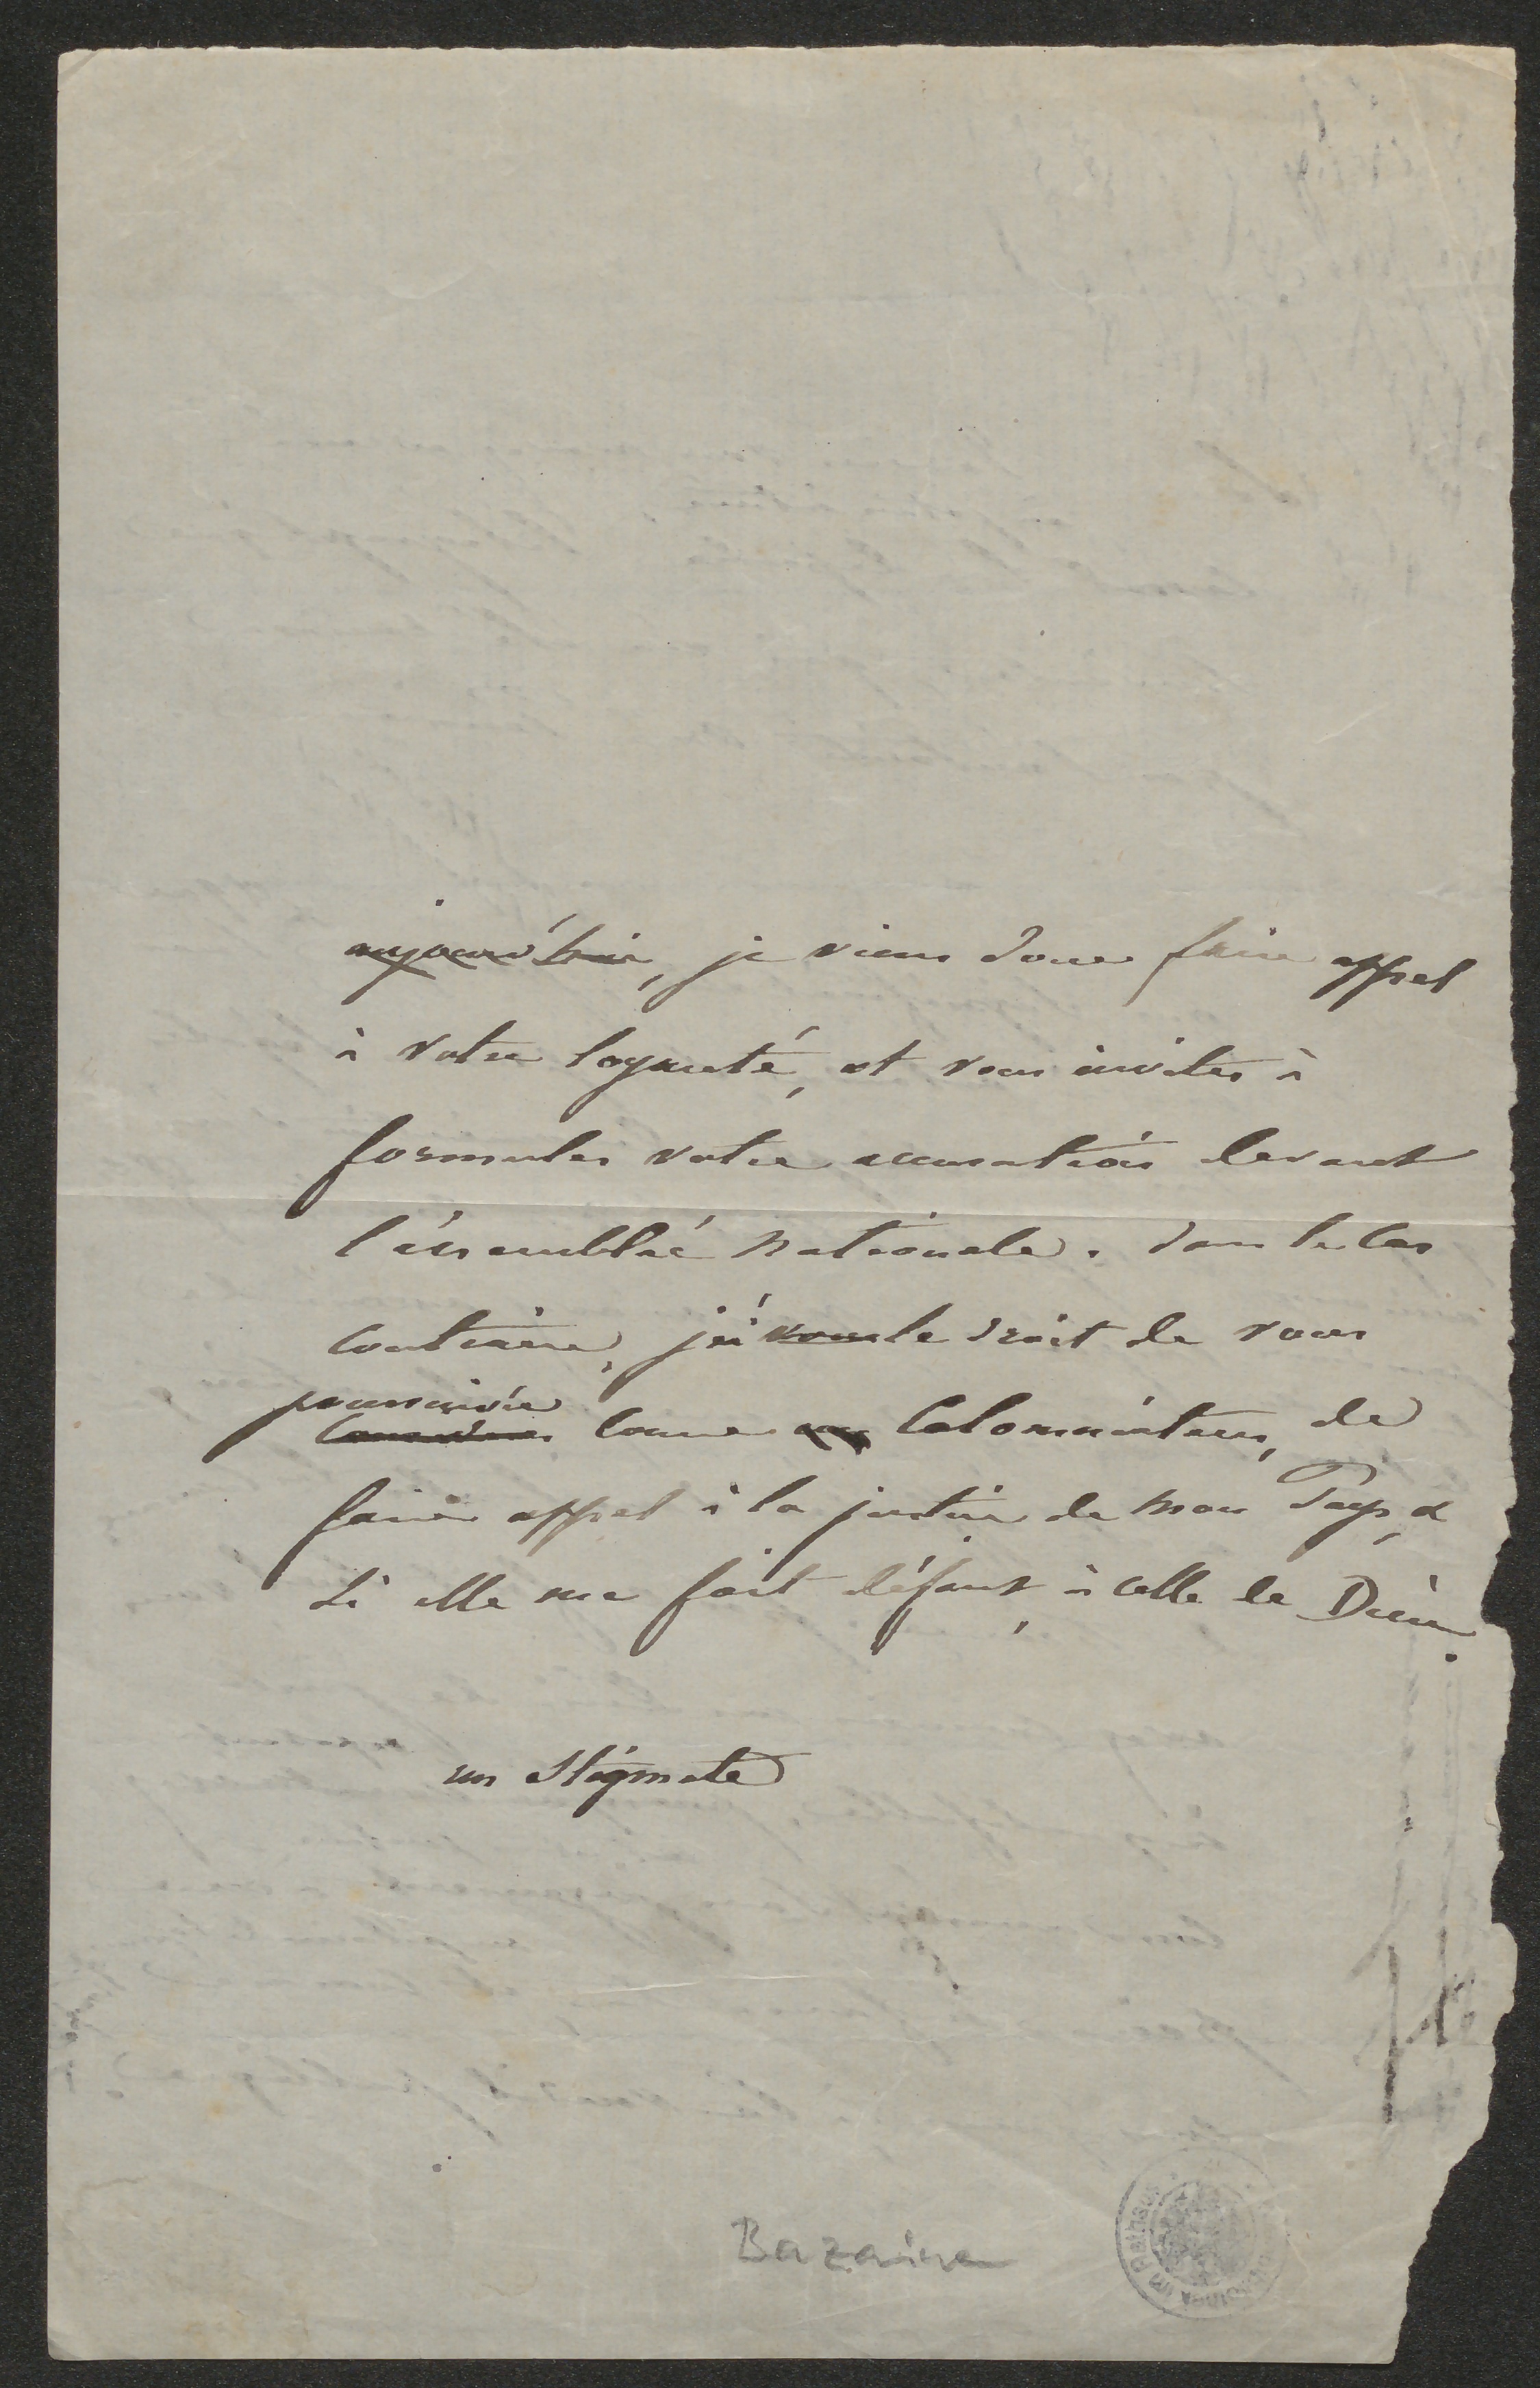 aujourd'hui, je viens donc faire appel
à votre loyauté, et vous inviter à
formuler votre accusation devant
l'assemblée nationale. dans le cas
contraire, j'ai vous le droit de vous
poursuivre
comme un Calomniateur, de
faire appel à la justice de mon Pays, et
si elle me fait défaut, à celle de Dieu.
un stigmate
Bazaine